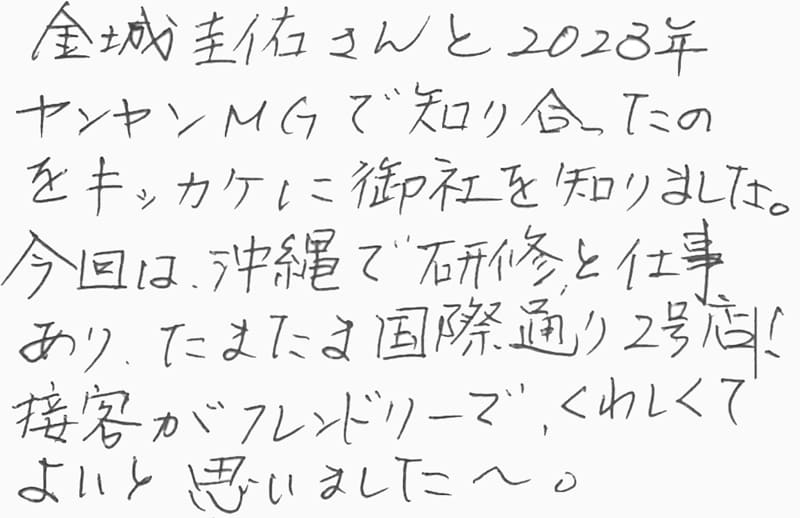 金城圭佑さんと2023年
ヤンヤンMGで知り合ったの
をキッカケに御社を知りました。
今回は、沖縄で研修と仕事
あり、たまたま国際通り2号店!
接客がフレンドリーで、くわしくて
よいと思いました〜。